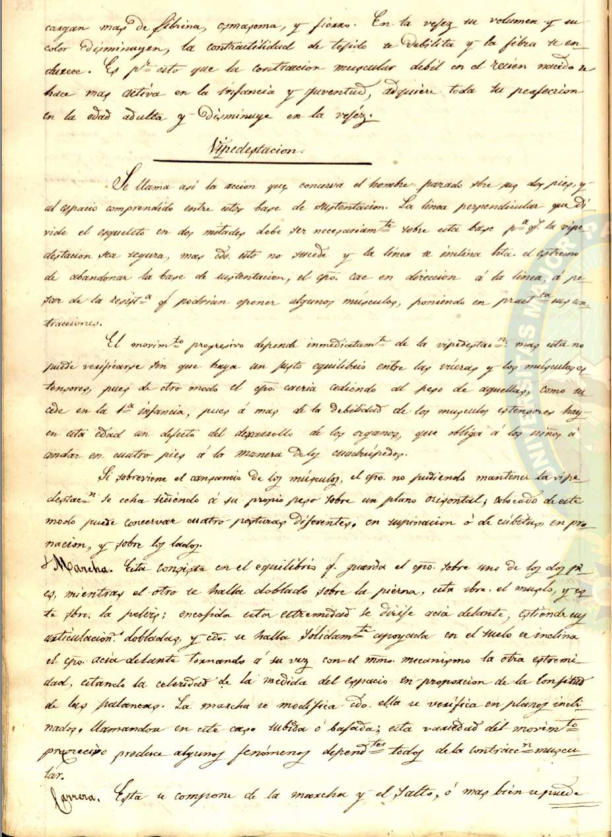 cargan mas de fibrina, osmasoma, y fierro. En la vejez su volumen y su
color disminuyen, la contractilidad de tejido se debilita y la fibra se en-
durece. Es pr. esto que la contraccion muscular debil en el recien nacido se
hace mas activa en la infancia y juventud, adquiere toda su perfeccion
en la edad adulta y disminuye en la vejéz.
Vipedestacion.
Se llama asi la accion que conserva el hombre parado sbre sus dos pies, y
al espacio comprendido entre estos base de sustentacion. La linea perpendicular que di-
vide el esqueleto en dos mitades debe ser necesariamte. sobre esta base pa. q. la vipe-
destacion sea segura, mas cdo. esto no sucede y la linea se inclina hta. el estremo
de abandonar la base de sustentacion, el cpo. cae en direccion á la linea, á pe-
sar de la resista. q podrian oponer algunos músculos, poniendo en practca. sus con-
tracciones.
El movimto. progresivo depende inmediatamte. de la vipedestacn. mas esta no
puede verificarse sin que haya un justo equilibrio entre las víceras y los músculos es-
tensores, pues de otro modo el cpo. caeria cediendo al peso de aquellas, como su-
cede en la 1a. infancia, pues á mas de la debilidad de los musculos estensores hay
en esta edad un defecto del desarrollo de los organos, que obliga á los niños á
andar en cuatro pies á la manera de los cuadrúpedos.
Si sobreviene el cansancio de los músculos, el cpo. no pudiendo mantener la vipe-
destacn. se echa cediendo á su propio peso sobre un plano orisontal; colocado de este
modo puede conservar cuatro posturas diferentes, en supinacion ó de cúbitus, en pro-
nacion, y sobre los lados.
Marcha. Esta consiste en el equilibrio q. guarda el cpo. sobre uno de los dos pi-
es, mientras el otro se halla doblado sobre la pierna, esta sbre. el muslo, y es-
te sbre. la pelvis; encojida esta estremidad se dirije acia delante, estiende sus
articulacions. dobladas, y cdo. se halla sólidamte. apoyada en el suelo se inclina
el cpo. acia delante tornando á su vez con el mmo mecanismo la otra estremi-
dad, estando la celeridad de la medida del espacio en proporcion de la lonjitud
de las palancas. La marcha se modifica cdo. ella se verifica en planos incli-
nados, llamandola en este caso subida ó bajada; esta variedad del movimto.
progresivo produce algunos fenómenos dependtes. todos de la contraccn. muscu-
lar.
Carrera. Esta se compone de la marcha y el salto, ó mas bien se puede